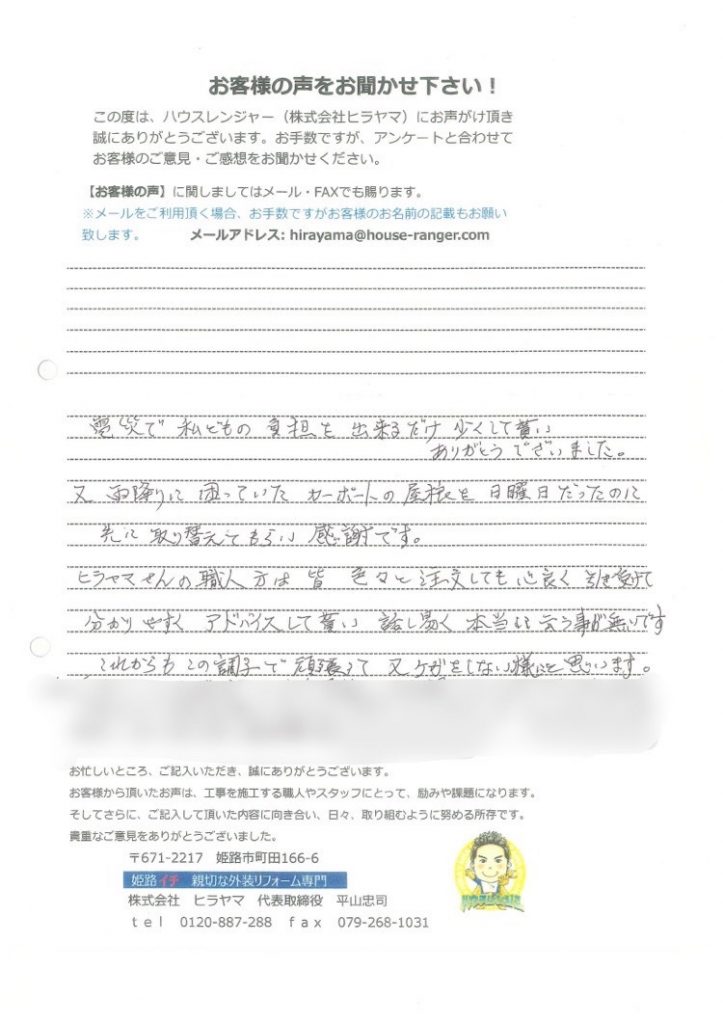 お客様の声をお聞かせ下さい！
この度は、ハウスレンジャー（株式会社ヒラヤマ）にお声がけ頂き
誠にありがとうございます。お手数ですが、アンケートと合わせて
お客様のご意見・ご感想をお聞かせください。
【お客様の声】に関しましてはメール・FAXでも賜ります。
※メールをご利用頂く場合、お手数ですがお客様のお名前の記載もお願い
致します。 メールアドレス: hirayama@house-ranger.com
で 私どもの 負担を 出来るだけ 少くして貰い
ありがとうございました。
又 雨降りに 困っていた カーポートの屋根を 日曜日だったのに
先に 取り替えてもらい 感謝です。
ヒラヤマさんの職人方は 皆 色々と注文しても 心良く 引き受けて
分かりやすく アドバイスして貰い 話し易く 本当に 云う事が無いです
これからもこの調子で 頑張って 又ケガをしない様にと思います。
お忙しいところ、ご記入いただき、誠にありがとうございます。
お客様から頂いたお声は、工事を施工する職人やスタッフにとって、励みや課題になります。
そしてさらに、ご記入して頂いた内容に向き合い、日々、取り組むように努める所存です。
貴重なご意見をありがとうございました。
〒671-2217 姫路市町田166-6
姫路イチ 親切な外装リフォーム専門
株式会社 ヒラヤマ 代表取締役 平山忠司
ｔｅｌ 0120-887-288 ｆａｘ 079-268-1031